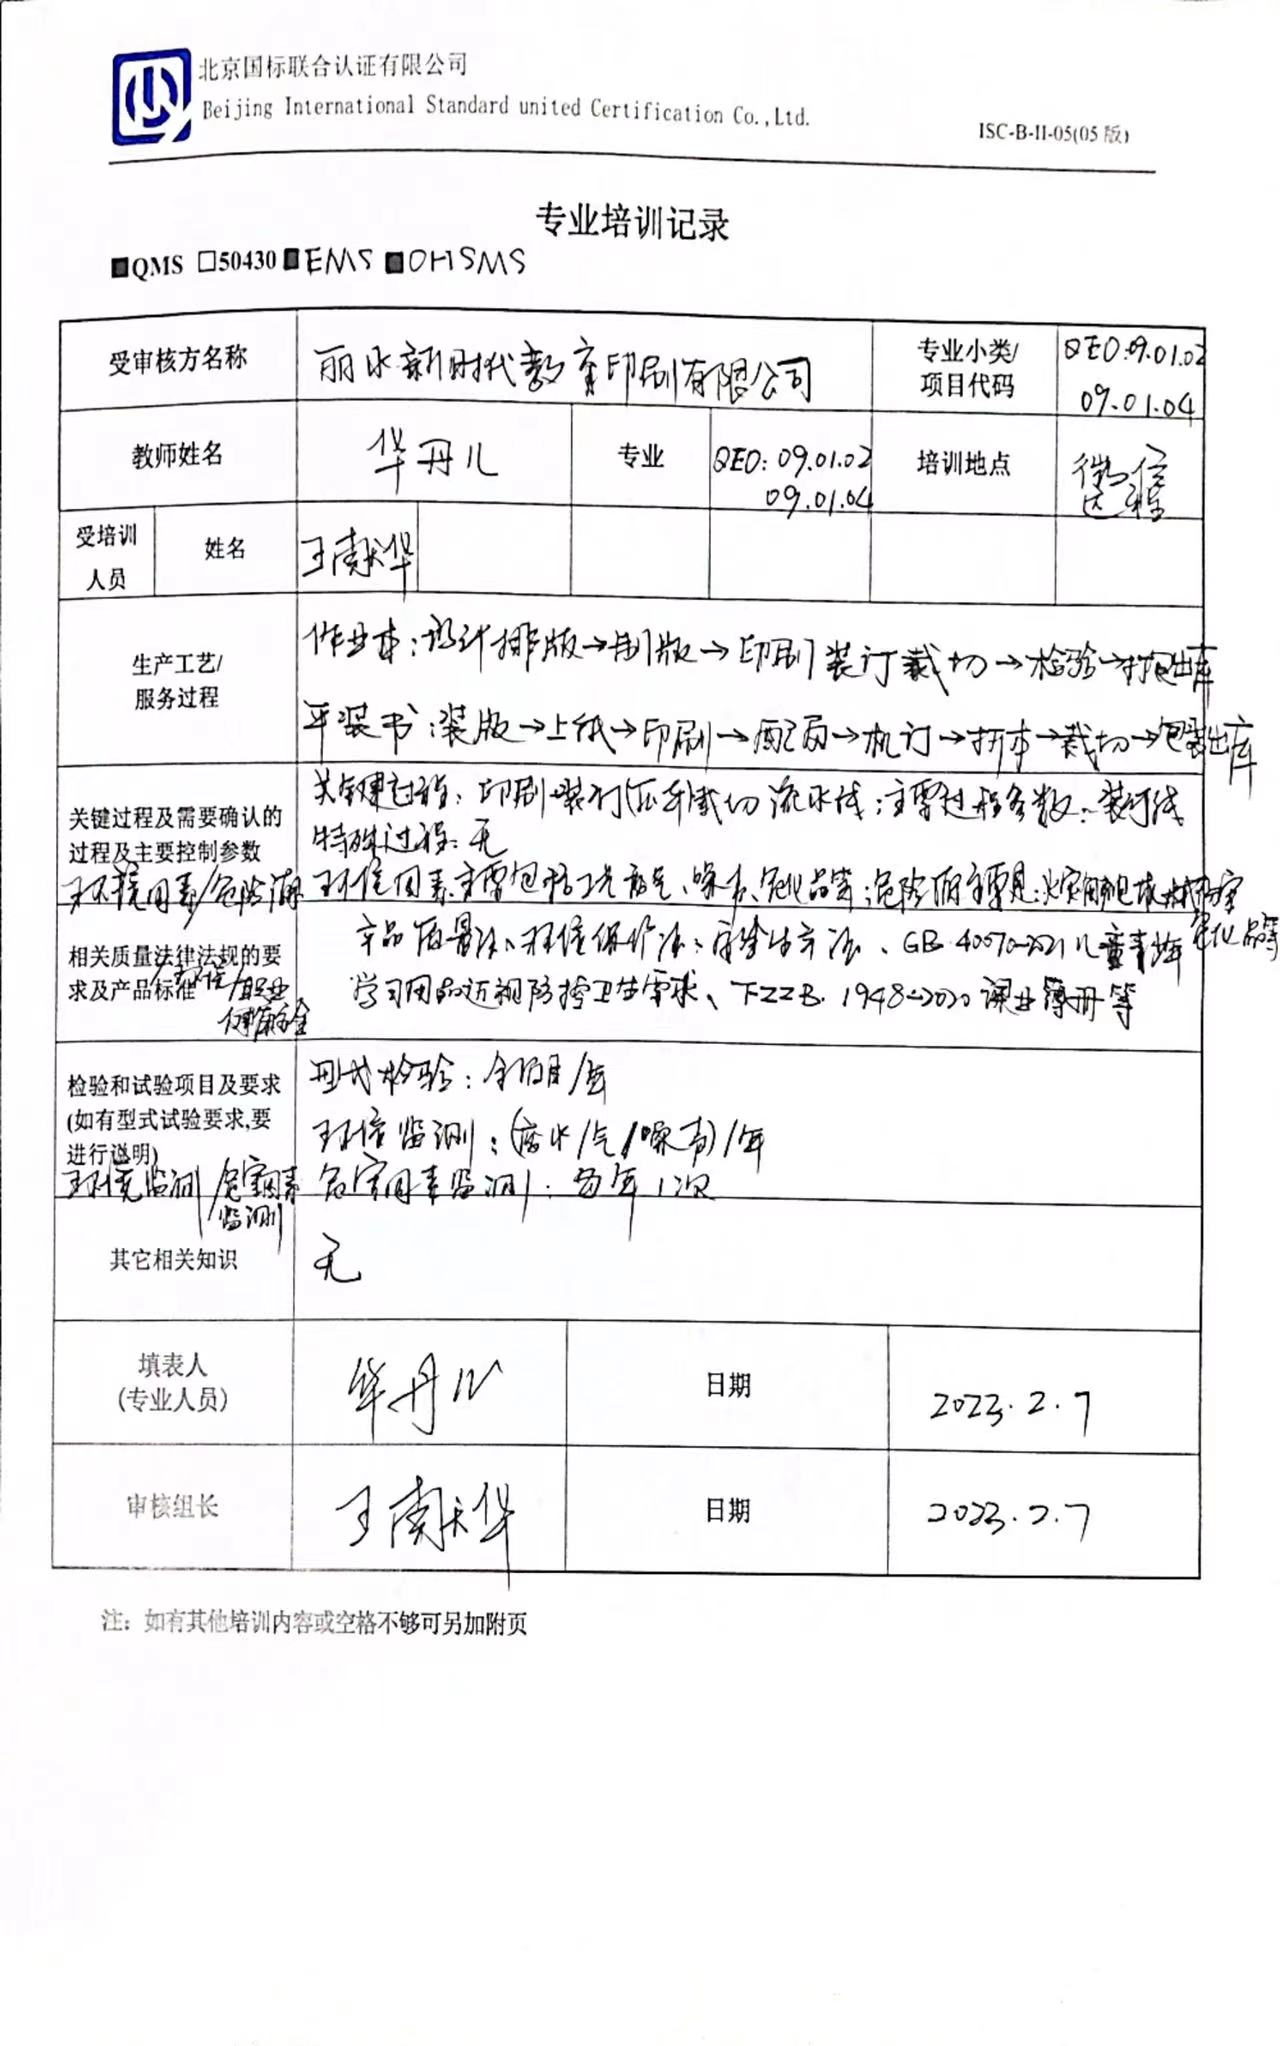 北京国标联合认证有限公司
Beijing International Standard united Certification Co.,Ltd.
ISC-B-II-05(05版)
专业培训记录
■QMS □50430 ■EMS ■OHSMS
受审核方名称
丽水新时代教育印刷有限公司
专业小类/
项目代码
QEO:09.01.02
09.01.04
教师姓名
华丹儿
专业
QEO:09.01.02
09.01.04
培训地点
微信
远程
受培训
人员
姓名
王献华
生产工艺/
服务过程
作业本:设计排版→制版→印刷装订裁切→检验→打包出库
平装书:装版→上纸→印刷→配页→机订→折本→裁切→包装出库
关键过程及需要确认的
过程及主要控制参数
环境因素/危险源
关键过程:印刷装订裁切流水线;主要过程参数:装订线
特殊过程:无
环境因素主要包括废气、噪声、危化品等;危险源主要是:火灾触电机械伤害
危化品等
相关质量法律法规的要
求及产品标准
/环境/职业
健康安全
产品质量法、环境保护法、安全生产法、GB 40070-2021儿童青少年
学习用品近视防控卫生要求、T/ZZB 1948-2020课业簿册等
检验和试验项目及要求
(如有型式试验要求,要
进行说明)
环境监测/危害因素
监测
型式检验:全项目/年
环境监测:(废水/气/噪声)/年
危害因素监测:每年1次
其它相关知识
无
填表人
(专业人员)
华丹儿
日期
2023.2.7
审核组长
王献华
日期
2023.2.7
注:如有其他培训内容或空格不够可另加附页